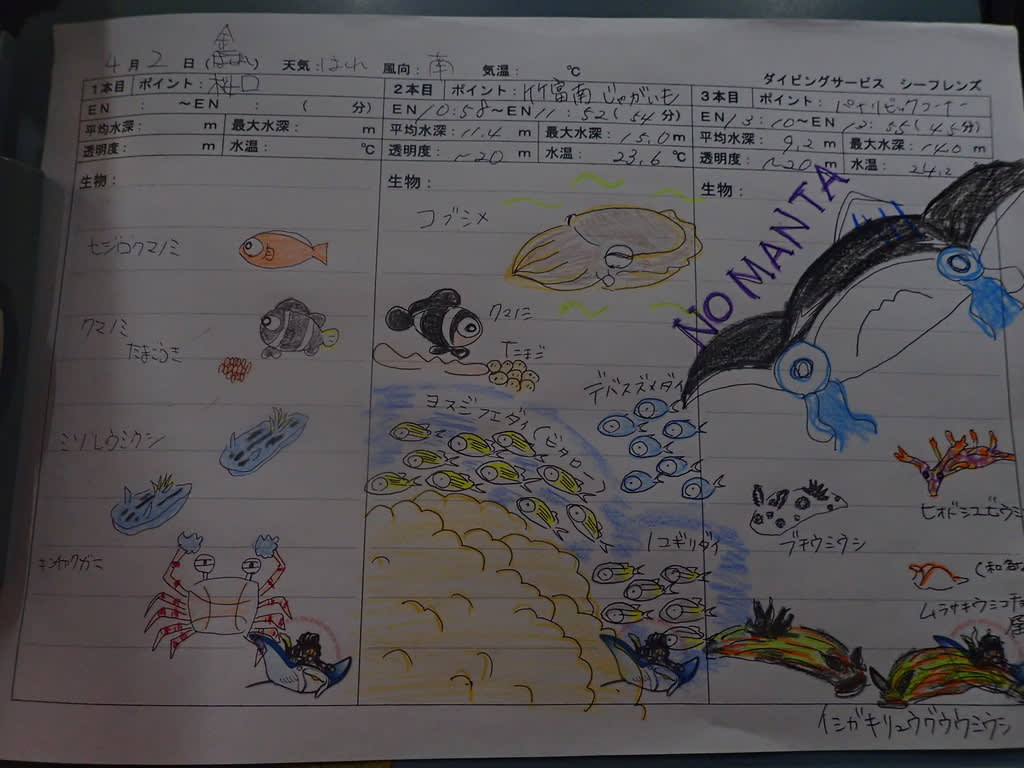 4月2日(金) 天気:はれ 風向:南 気温: ℃
ダイビングサービス シーフレンズ
1本目 ポイント:桜口
EN : ～EN : ( 分)
平均水深: m 最大水深: m
透明度: m 水温: ℃
生物:
セジロクマノミ
クマノミ
たまごつき
ミゾレウミウシ
キンチャクガニ
2本目 ポイント:竹富南 じゃがいも
EN 10:58～EN 11:52(54分)
平均水深:11.4 m 最大水深:15.0 m
透明度:～20 m 水温:23.6 ℃
生物:
コブシメ
クマノミ
たまご
デバスズメダイ
ヨスジフエダイ
ノコギリダイ
3本目 ポイント:
EN 13:10～EN 13:55(45分)
平均水深:9.2 m 最大水深:14.0 m
透明度:～20 m 水温:24.2
生物:
NO MANTA
ブチウミウシ
ヒオドシユビウミ
(和名
ムラサキウミコチョ
属
イシガキリュウグウウミウシ